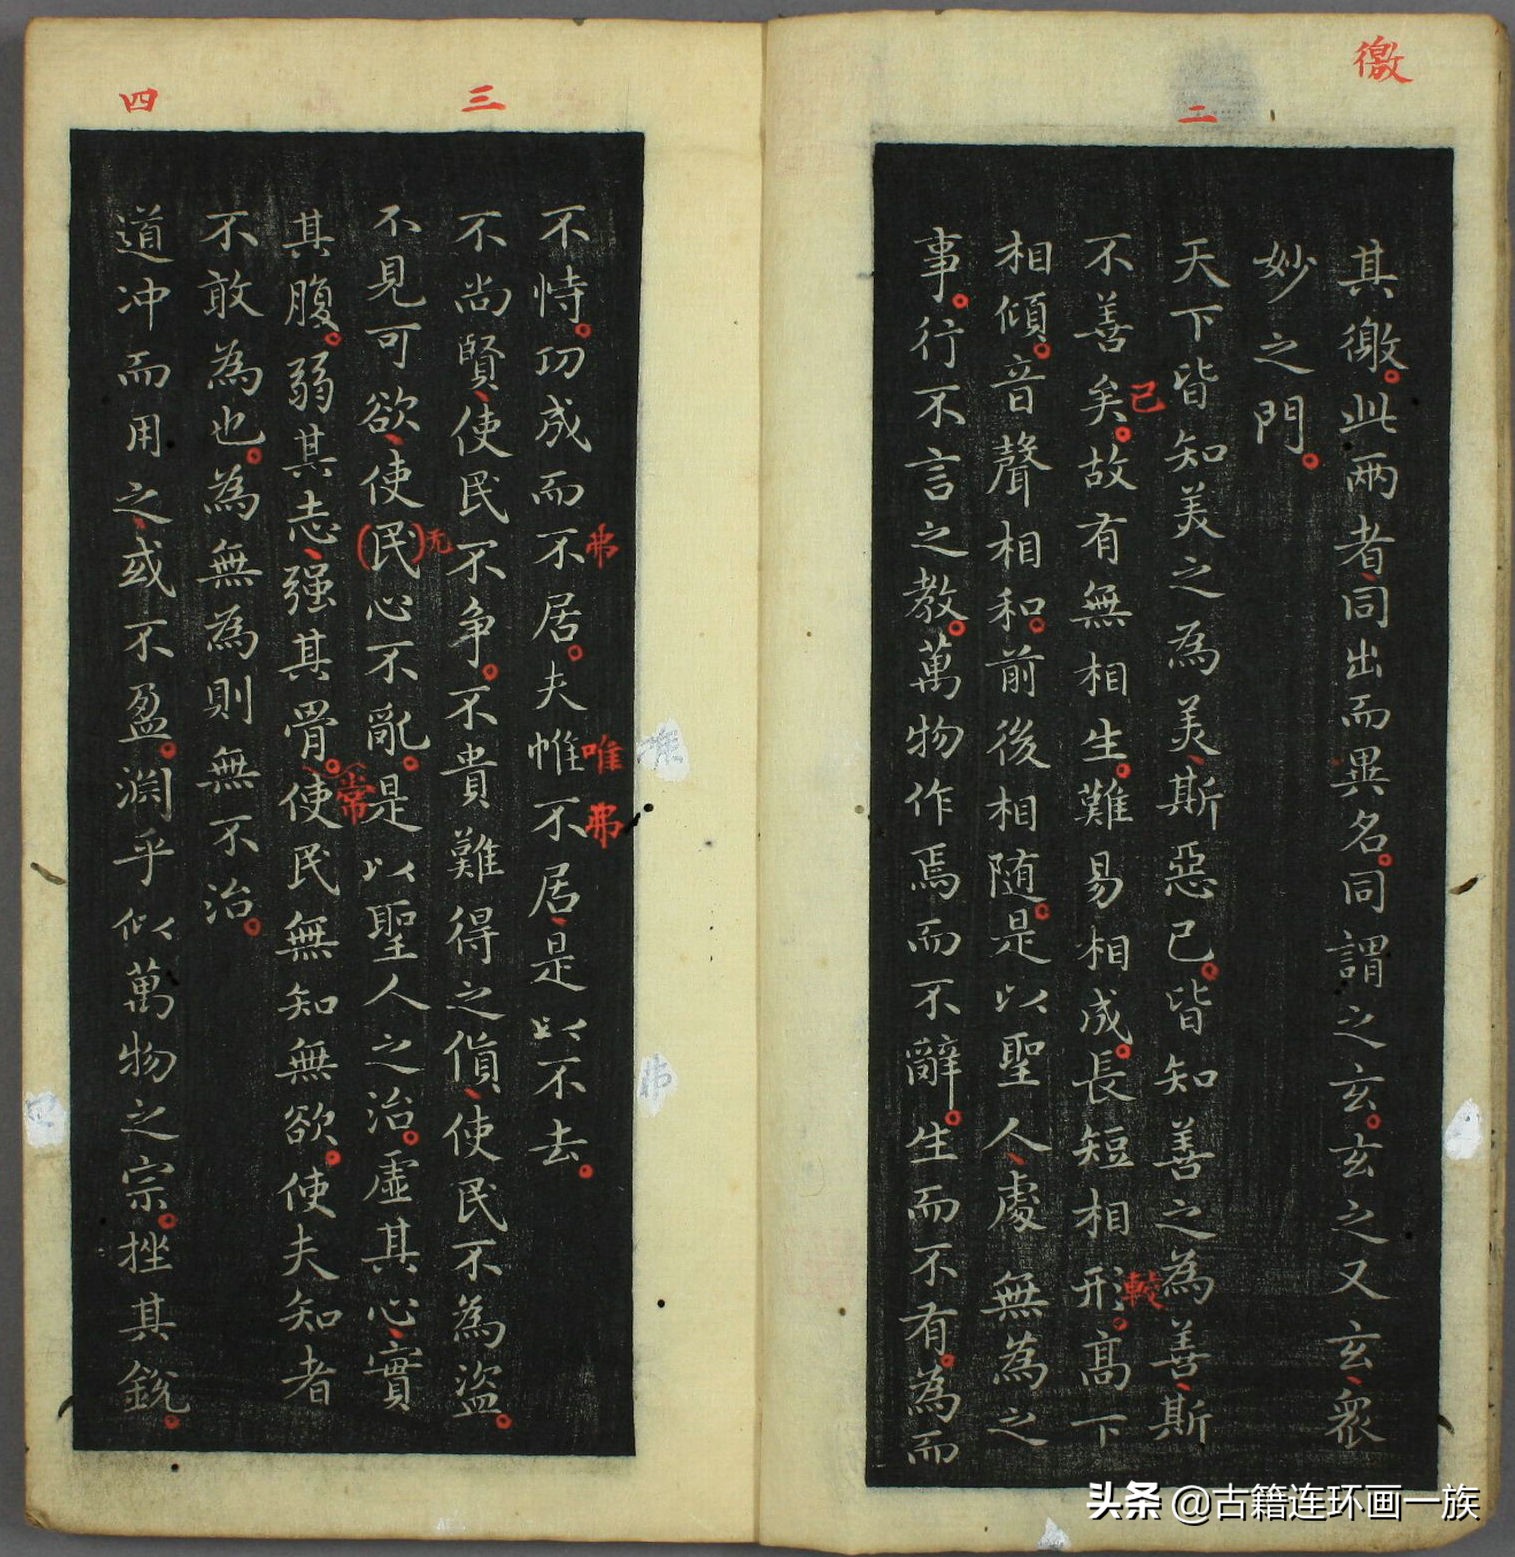 徼
二
其徼。此兩者、同出而異名。同謂之玄。玄之又玄、衆
妙之門。
天下皆知美之為美、斯惡已。皆知善之為善、斯
不善矣。故有無相生。難易相成。長短相形。高下
已
較
相傾。音聲相和。前後相随。是以聖人、處無為之
事。行不言之教。萬物作焉而不辭。生而不有。為而
三
四
不恃。功成而不居。夫惟不居、是以不去。
弗
唯
弗
不尚賢、使民不争。不貴難得之貨、使民不為盜。
不見可欲、使(民)心不亂。是以聖人之治。虛其心、實
无
其腹。弱其志、强其骨。使民無知無欲。使夫知者
常
不敢為也。為無為則無不治。
道冲而用之、或不盈。淵乎似萬物之宗。挫其銳。
头条 @古籍连环画一族